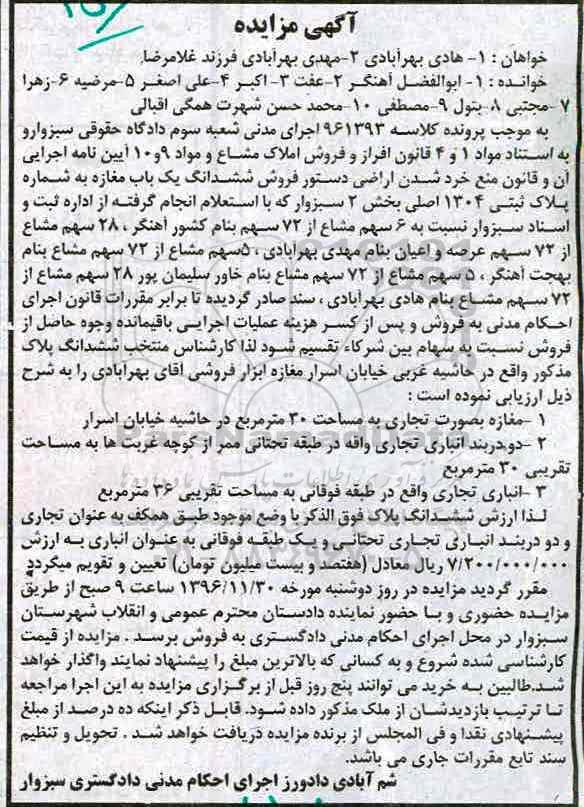 آگهی مزایده
خواهان : ۱- هادی بهرآبادی ۲-مهدی بهرآبادی فرزند غلامرضا
خوانده : ۱- ابوالفضل آهنگر ۲-عفت ۳- اکبر ۴-علی اصغر ۵-مرضیه ۶-زهرا
۷-مجتبی ۸-بتول ۹-مصطفی ۱۰-محمد حسن شهرت همگی اقبالی
به موجب پرونده کلاسه ۹۶۱۳۹۳ اجرای مدنی شعبه سوم دادگاه حقوقی سبزوارو
به استناد مواد ۱ و ۴ قانون افراز و فروش املاک مشاع و مواد ۹و۱۰ آیین نامه اجرایی
آن و قانون منع خرد شدن اراضی دستور فروش ششدانگ یک باب مغازه به شماره
پلاک ثبتی ۱۳۰۴ اصلی بخش ۲ سبزوار که با استعلام انجام گرفته از اداره ثبت و
اسناد سبزوار نسبت به ۶ سهم مشاع از ۷۲ سهم بنام کشور آهنگر ، ۲۸ سهم مشاع
از ۷۲ سهم عرصه و اعیان بنام مهدی بهرآبادی ، ۵سهم مشاع از ۷۲ سهم مشاع بنام
بهجت آهنگر ، ۵ سهم مشاع از ۷۲ سهم مشاع بنام خاور سلیمان پور ۲۸ سهم مشاع از
۷۲ سهم مشاع بنام هادی بهرآبادی ، سند صادر گردیده تا برابر مقررات قانون اجرای
احکام مدنی به فروش و پس از کسر هزینه عملیات اجرایی باقیمانده وجوه حاصل از
فروش نسبت به سهام بین شرکاء تقسیم شود لذا کارشناس منتخب ششدانگ پلاک
مذکور واقع در حاشیه غربی خیابان اسرار مغازه ابزار فروشی آقای بهرآبادی را به شرح
ذیل ارزیابی نموده است :
۱ -مغازه بصورت تجاری به مساحت ۳۰ مترمربع در حاشیه خیابان اسرار
۲ -دودربند انباری تجاری واقه در طبقه تحتانی ممر از کوچه غربت ها به مساحت
تقریبی ۳۰ مترمربع
۳ -انباری تجاری واقع در طبقه فوقانی به مساحت تقریبی ۳۶ مترمربع
لذا ارزش ششدانگ پلاک فوق الذکر با وضع موجود طبق همکف به عنوان تجاری
و دو دربند انباری تجاری تحتانی و یک طبقه فوقانی به عنوان انباری به ارزش
۷/۲۰۰/۰۰۰/۰۰۰ ریال معادل (هفتصد و بیست میلیون تومان) تعیین و تقویم میگردد
مقرر گردید مزایده در روز دوشنبه مورخه ۱۳۹۶/۱۱/۳۰ ساعت ۹ صبح از طریق
مزایده حضوری و با حضور نماینده دادستان محترم عمومی و انقلاب شهرستان
سبزوار در محل اجرای احکام مدنی دادگستری به فروش برسد . مزایده از قیمت
کارشناسی شده شروع و به کسانی که بالاترین مبلغ را پیشنهاد نمایند واگذار خواهد
شد.طالبین به خرید می توانند پنج روز قبل از برگزاری مزایده به این اجرا مراجعه
تا ترتیب بازدیدشان از ملک مذکور داده شود. قابل ذکر اینکه ده درصد از مبلغ
پیشنهادی نقدا و فی المجلس از برنده مزایده دریافت خواهد شد . تحویل و تنظیم
سند تابع مقررات جاری می باشد.
شم آبادی دادورز اجرای احکام مدنی دادگستری سبزوار